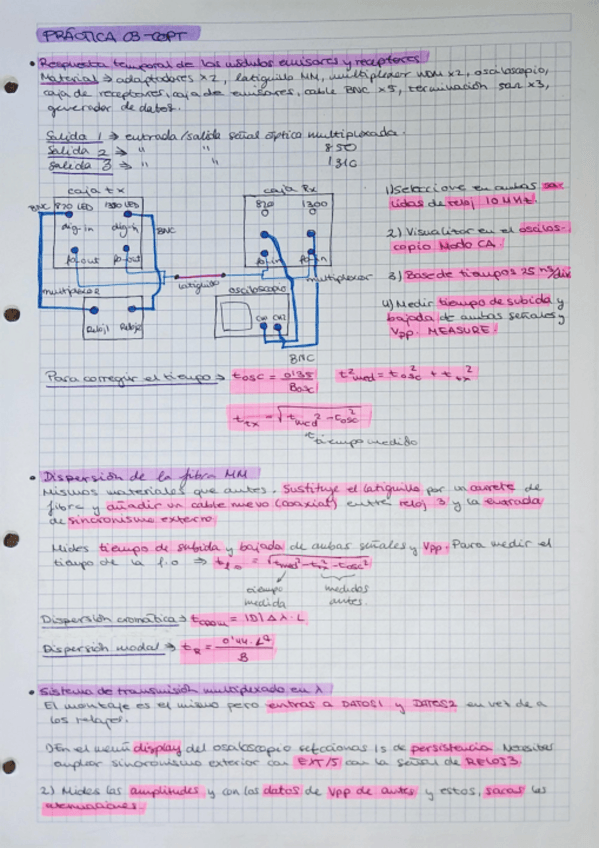 PRÁCTICA 03 - COPT
• Respuesta temporal de los módulos emisores y receptores
Material → adaptadores x2, latiguillo MM, multiplexor WDM x2, osciloscopio,
caja de receptores, caja de emisores, cable BNC x5, terminación 50Ω x3,
generador de datos.
Salida 1 → entrada/salida señal óptica multiplexada.
Salida 2 → " " 850
Salida 3 → " " 1310
caja tx
caja Rx
BNC
870 LED
1300 LED
dig-in
dig-in
BNC
fo-out
fo-out
870
1300
fo-in
fo-in
multiplexor
latiguillo
multiplexor
osciloscopio
Reloj1
Reloj2
CH1
CH2
BNC
1) Seleccione en ambas sa
lidas de reloj 10 MHz.
2) Visualizar en el oscilos-
copio Modo CA.
3) Base de tiempos 25 ns/div
4) Medir tiempo de subida y
bajada de ambas señales y
Vpp. MEASURE.
Para corregir el tiempo → tosc = 0'35 / Bosc
t²med = tosc² + ttx²
ttx = √(tmed² - tosc²)
tiempo medido
• Dispersión de la fibra MM
Mismos materiales que antes. Sustituye el latiguillo por un carrete de
fibra y añadir un cable nuevo (coaxial) entre reloj 3 y la entrada
de sincronismo externo.
Mides tiempo de subida y bajada de ambas señales y Vpp. Para medir el
tiempo de la f.o → tf.o = √(tmed² - ttx² - tosc²)
tiempo
medida
medidos
antes.
Dispersión cromática → tcrom = |D| Δλ · L
Dispersión modal → tR = 0'44 · L^q / B
• Sistema de transmisión multiplexado en λ
El montaje es el mismo pero entras a DATOS1 y DATOS2 en vez de a
los relojes.
1) En el menú display del osciloscopio seleccionas 1s de persistencia. Necesitas
ampliar sincronismo exterior con EXT/5 con la señal de RELOJ3.
2) Mides las amplitudes y con los datos de Vpp de antes y estos, sacas las
atenuaciones.